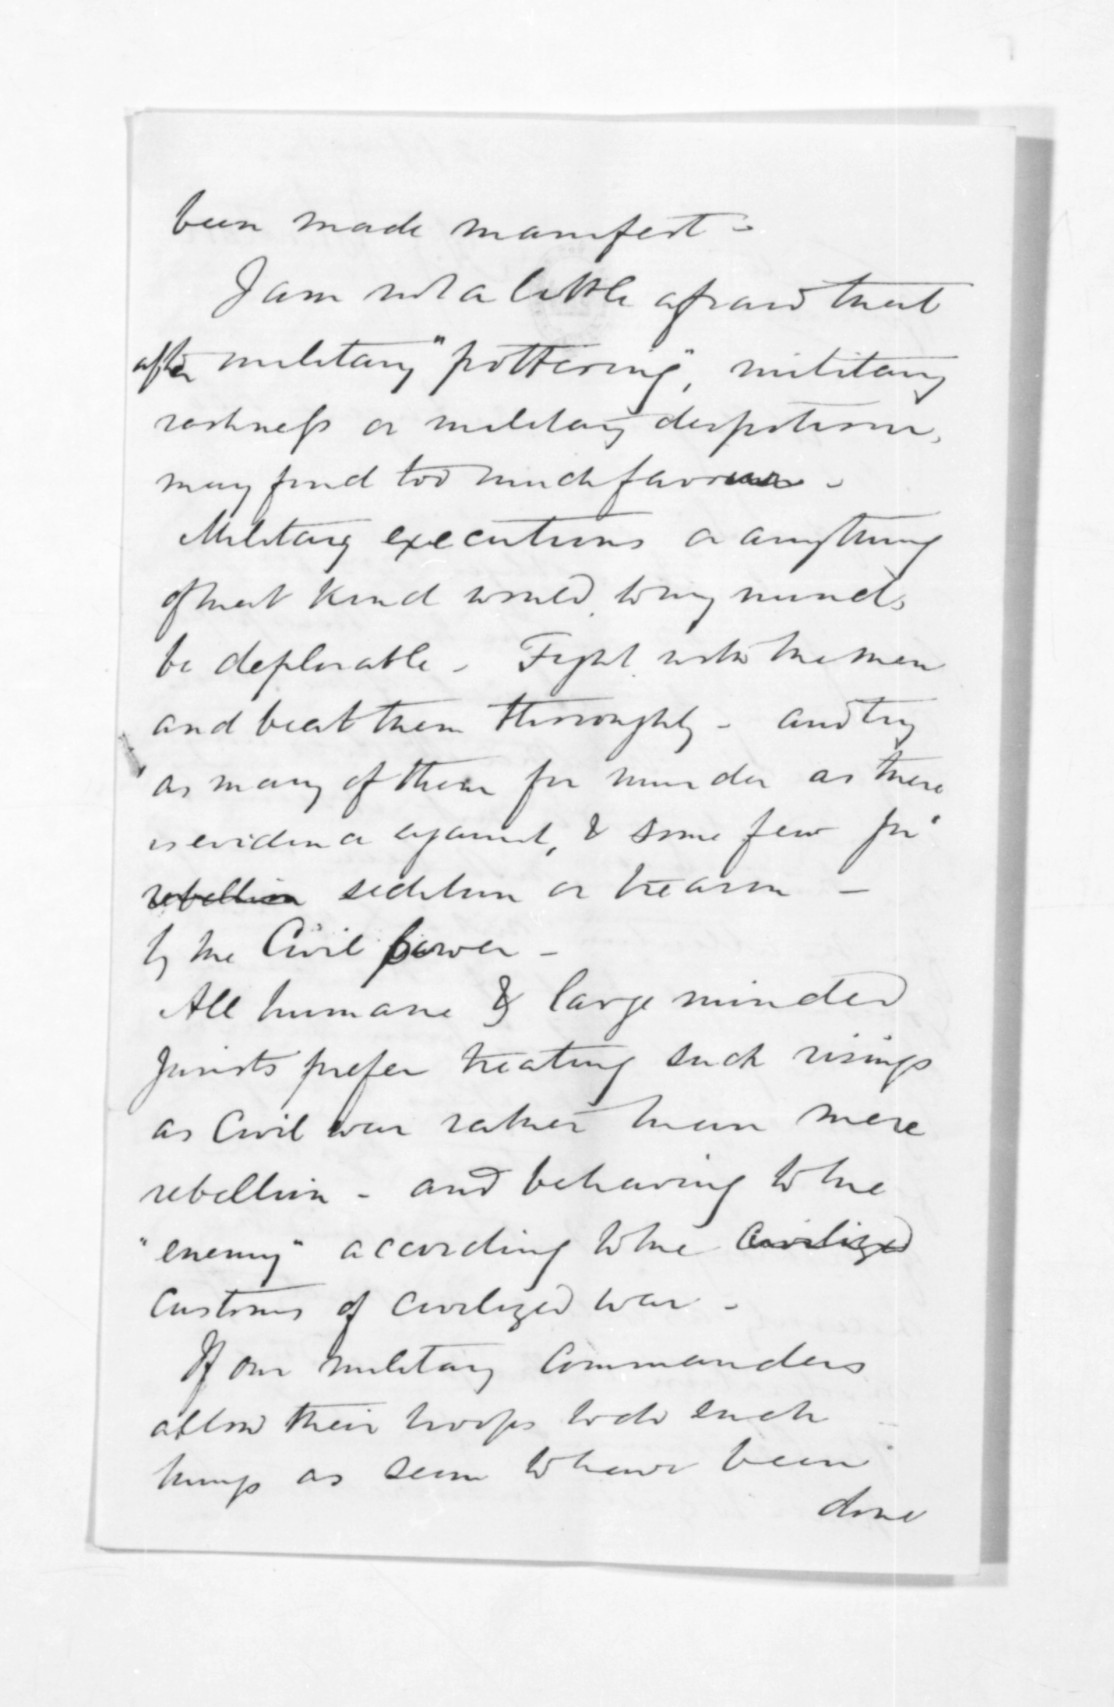 been made manifest -
I am not a little afraid that
after military "pottering", military
rashness or military despotism,
may find too much favour -
Military executions or anything
of that kind would, to my mind,
be deplorable - Fight with the men
and beat them thoroughly - and try
as many of them for murder as there
is evidence against, & some few for
rebellion sedition or treason -
by the Civil power -
All humane & large minded
Jurists prefer treating such risings
as Civil war rather than mere
rebellion - and behaving to the
"enemy" according to the civilized
customs of civilized war -
If our military Commanders
allow their troops to do such
things as seem to have been
done